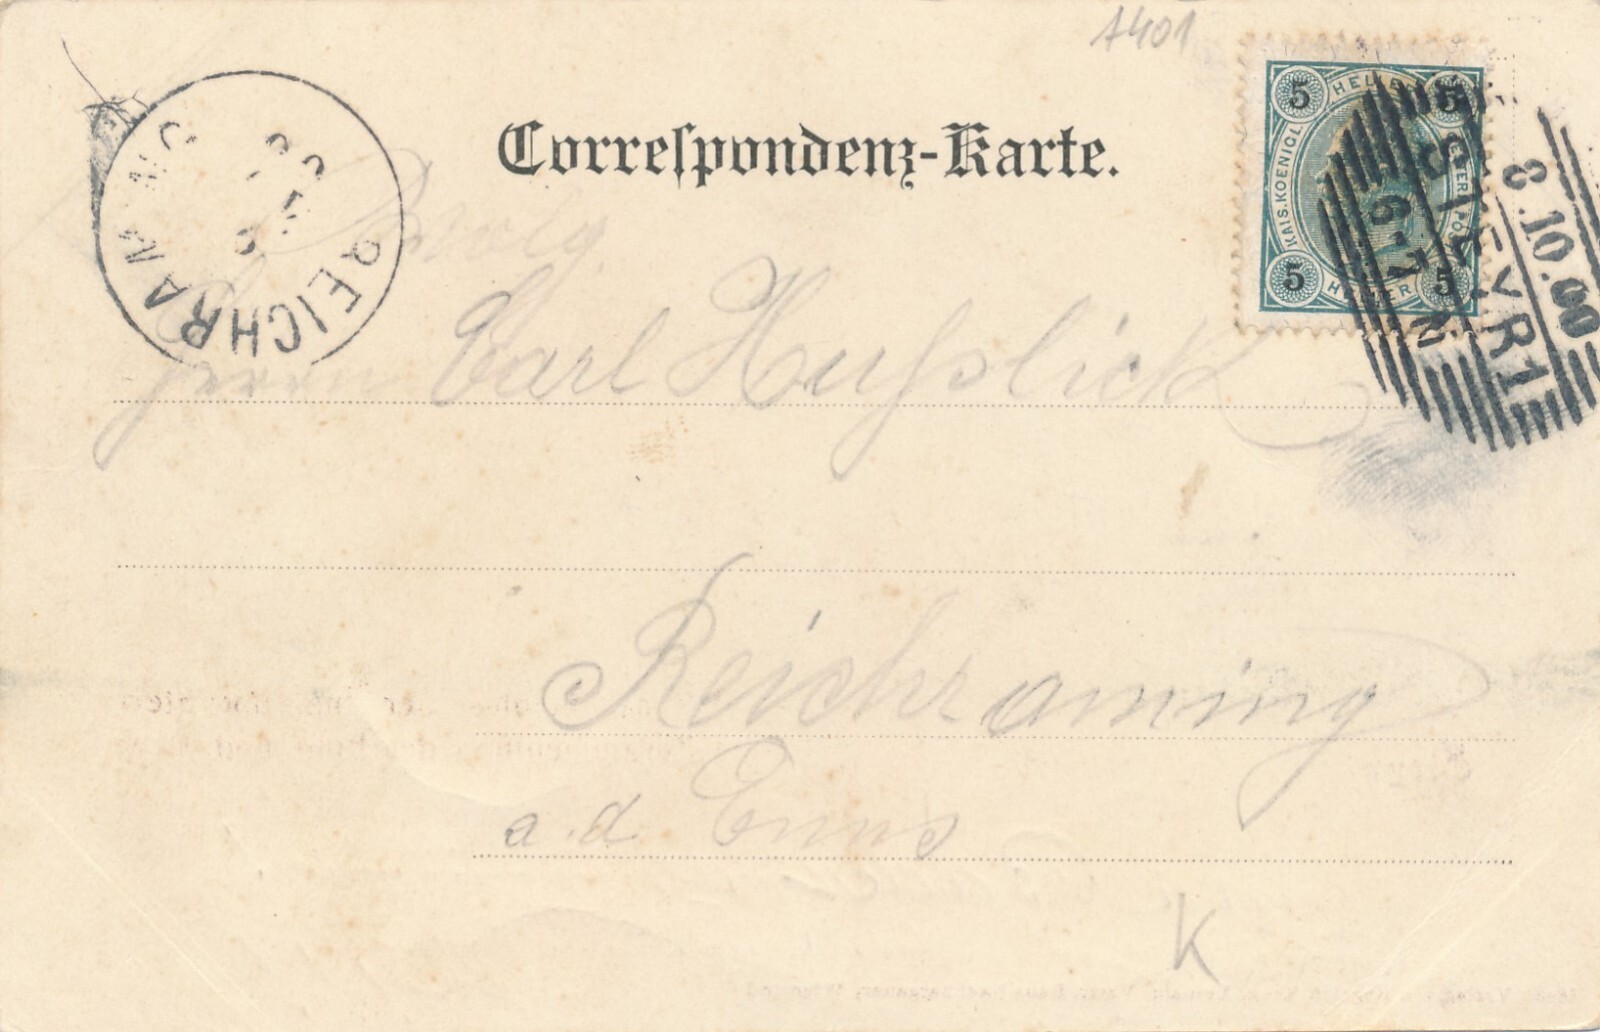 A401
Correspondenz-Karte.
5 HELLER 5
KAIS.KOENIGL. OESTERR.POST
5 HELLER 5
STEYR 1
8.10.00
6-7 N
REICHRAMING
Herrn Carl Hußslick
Reichraming
a.d Enns
K